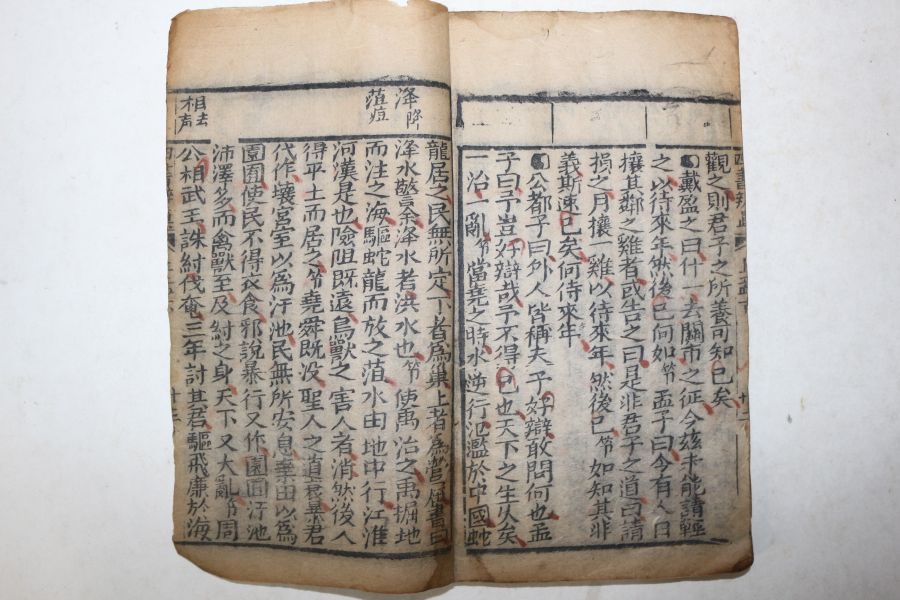 觀之則君子之所養可知已矣
戴盈之曰什一去關市之征今玆未能請輕
之以待來年然後已何如 節 孟子曰今有人日
攘其鄰之雞者或告之曰是非君子之道曰請
損之月攘一雞以待來年然後已 節 如知其非
義斯速已矣何待來年
公都子曰外人皆稱夫子好辯敢問何也孟
子曰予豈好辯哉予不得已也天下之生久矣
一治一亂 節 當堯之時水逆行氾濫於中國蛇
龍居之民無所定下者爲巢上者爲營窟書曰
洚水警余洚水者洪水也 節 使禹治之禹掘地
而注之海驅蛇龍而放之菹水由地中行江淮
河漢是也險阻既遠鳥獸之害人者消然後人
得平土而居之 節 堯舜既没聖人之道衰暴君
代作壞宮室以爲汙池民無所安息棄田以爲
園囿使民不得衣食邪說暴行又作園囿汙池
沛澤多而禽獸至及紂之身天下又大亂 節 周
公相武王誅紂伐奄三年討其君驅飛廉於海
洚 降
菹 菹
相 去声